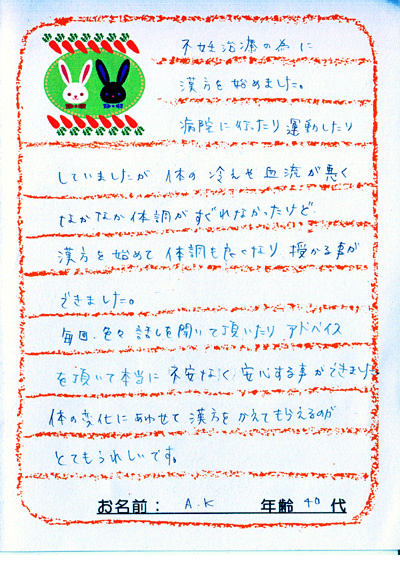 不妊治療の為に
漢方を始めました。
病院に行ったり運動したり
していましたが 体の冷えや血流が悪く
なかなか体調がすぐれなかったけど
漢方を始めて 体調も良くなり 授かる事が
できました。
毎回、色々話しを聞いて頂いたり アドバイス
を頂いて本当に 不安なく 安心する事ができました
体の変化にあわせて漢方をかえてもらえるのが
とてもうれしいです。
お名前： A.K 年齢 40 代